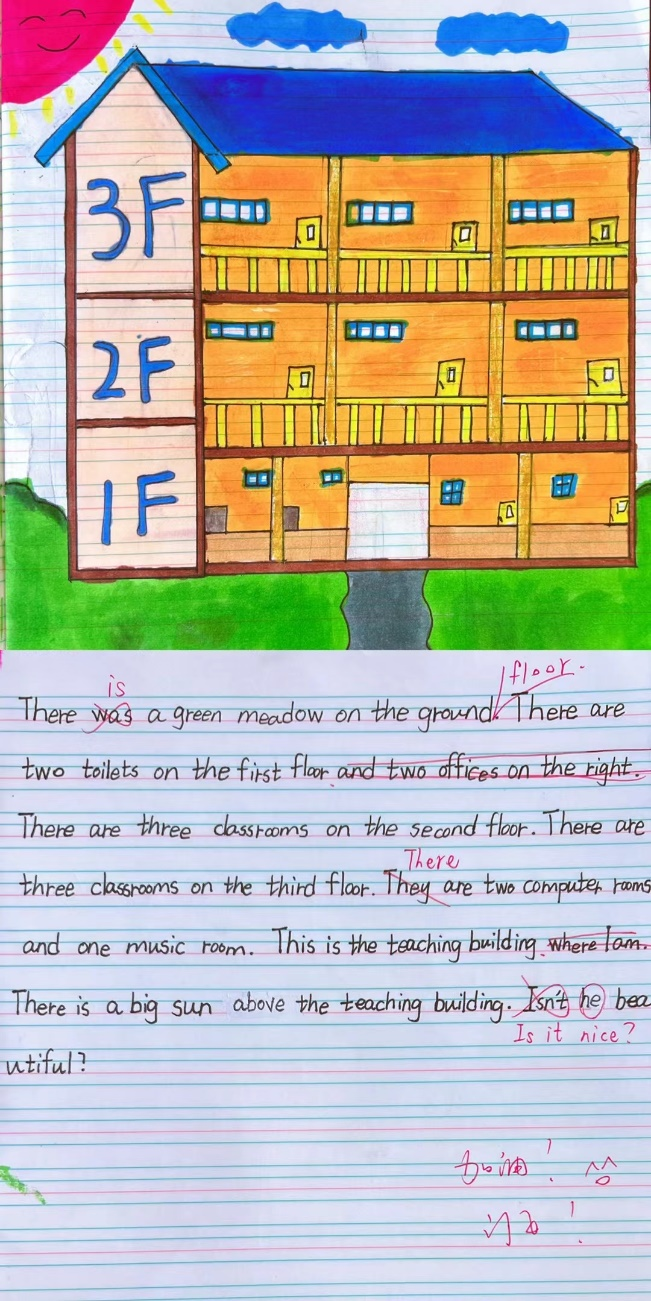 3F
2F
1F
is
floor.
There was a green meadow on the ground. There are
two toilets on the first floor and two offices on the right.
There are three classrooms on the second floor. There are
There
three classrooms on the third floor. They are two computer rooms
and one music room. This is the teaching building where I am.
There is a big sun above the teaching building. Isn't he bea
Is it nice?
utiful?
加油!